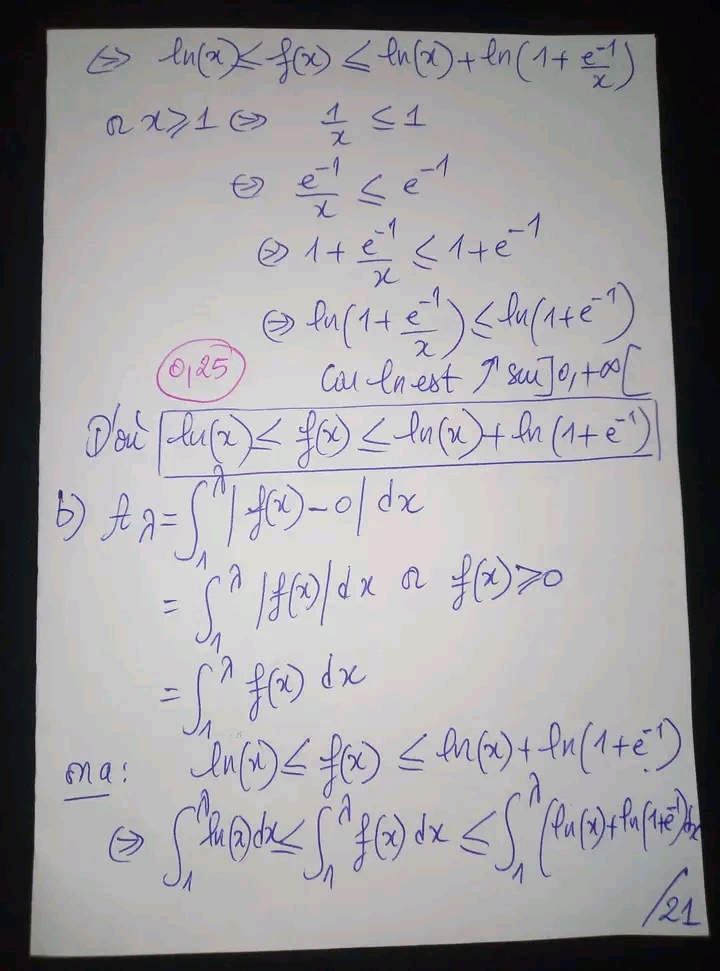 ⇔ ln(x) ≤ f(x) ≤ ln(x) + ln(1 + e⁻¹/x)
or x ⩾ 1 ⇔ 1/x ≤ 1
⇔ e⁻¹/x ≤ e⁻¹
⇔ 1 + e⁻¹/x ≤ 1 + e⁻¹
⇔ ln(1 + e⁻¹/x) ≤ ln(1 + e⁻¹)
0,25 Car ln est ↗ sur ]0, +∞[
D'où ln(x) ≤ f(x) ≤ ln(x) + ln(1 + e⁻¹)
b) Aλ = ∫₁^λ |f(x) − 0| dx
= ∫₁^λ |f(x)| dx or f(x) ⩾ 0
= ∫₁^λ f(x) dx
on a : ln(x) ≤ f(x) ≤ ln(x) + ln(1 + e⁻¹)
⇔ ∫₁^λ ln(x) dx ≤ ∫₁^λ f(x) dx ≤ ∫₁^λ (ln(x) + ln(1+e⁻¹) dx
/21